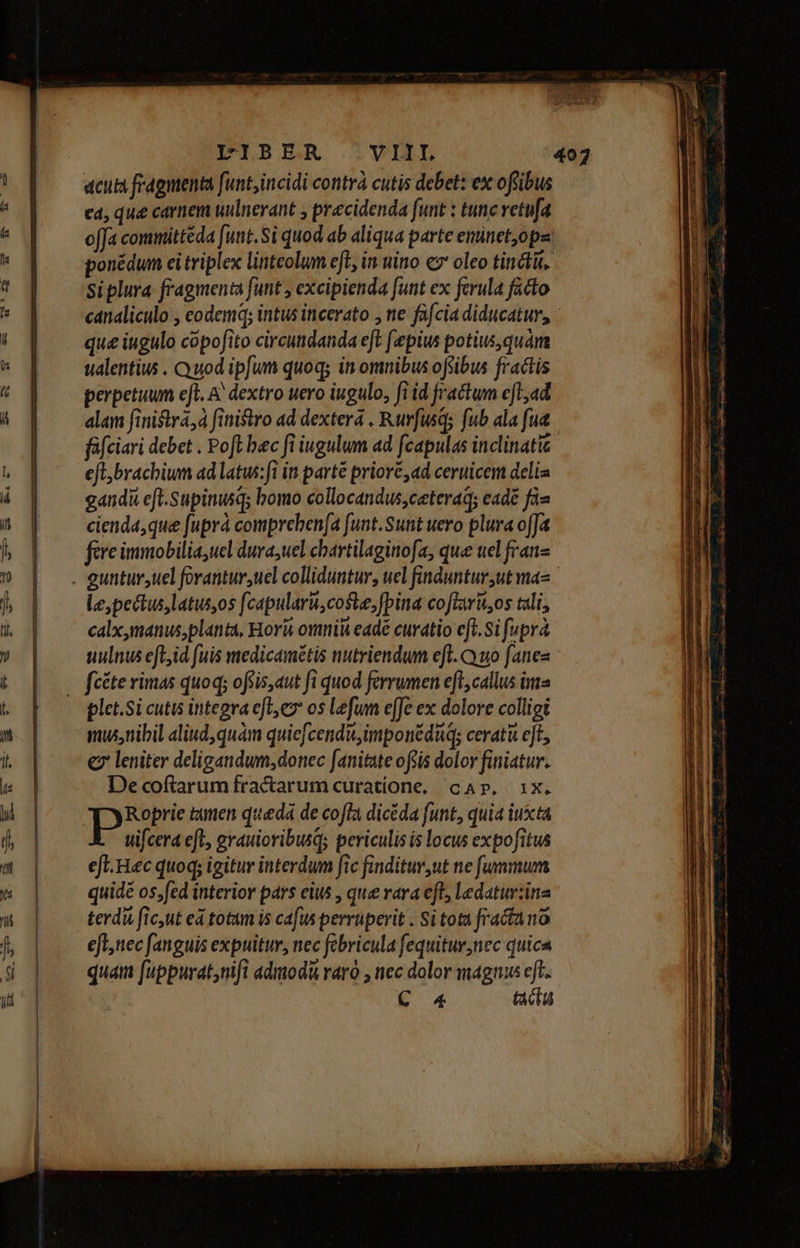 LIBER VIII. 407
acuta fragmenta ſunt, incidi contrà cutis debet: ex oſsibus
ea, quæ carnem uulnerant, præcidenda ſunt: tunc retuſa
oſſa committẽda ſunt. Si quod ab aliqua parte eminet, op-
ponẽdum ei triplex linteolum eſt, in uino & oleo tinctũ.
Si plura fragmenta ſunt, excipienda ſunt ex ferula facto
canaliculo, eodemq; intus incerato, ne faſcia diducatur,
quæ iugulo cõpoſito circundanda eſt ſæpius potius, quàm
ualentius. Quod ipſum quoq; in omnibus oſsibus fractis
perpetuum eſt. A' dextro uero iugulo, ſi id fractum eſt, ad
alam ſiniſtrã, à ſiniſtro ad dexterã. Rurſusq; ſub ala ſua
faſciari debet. Poſt hæc ſi iugulum ad ſcapulas inclinatũ
eſt, brachium ad latus: ſi in partẽ priorẽ, ad ceruicem deli-
gandũ eſt. Supinusq; homo collocandus, cæteraq; eadẽ fa-
cienda, quæ ſuprà comprehenſa ſunt. Sunt uero plura oſſa
fere immobilia, uel dura, uel chartilaginoſa, quæ uel fran-
guntur, uel forantur, uel colliduntur, uel finduntur, ut ma-
læ, pectus, latus, os ſcapularũ, coſtæ, ſpina coſtarũ, os tali,
calx, manus, planta, Horũ omniũ eadẽ curatio eſt. Si ſuprà
uulnus eſt, id ſuis medicamẽtis nutriendum eſt. Quo ſane-
ſcẽte rimas quoq; oſsis, aut ſi quod ferrumen eſt, callus im-
plet. Si cutis integra eſt, & os læſum eſſe ex dolore colligi
mus, nihil aliud, quàm quieſcendũ, imponẽdũq; ceratũ eſt,
& leniter deligandum, donec ſanitate oſsis dolor finiatur.
De coſtarum fractarum curatione, CAP. IX.
PRoprie tamen quædã de coſta dicẽda ſunt, quia iuxta
uiſcera eſt, grauioribusq; periculis is locus expoſitus
eſt. Hæc quoq; igitur interdum ſic finditur, ut ne ſummum
quidẽ os, ſed interior pars eius, quæ rara eſt, lædatur: in-
terdũ ſic, ut eã totam is caſus perruperit. Si tota fracta nõ
eſt, nec ſanguis expuitur, nec febricula ſequitur, nec quic-
quam ſuppurat, niſi admodũ rarò, nec dolor magnus eſt.
C 4 tactu